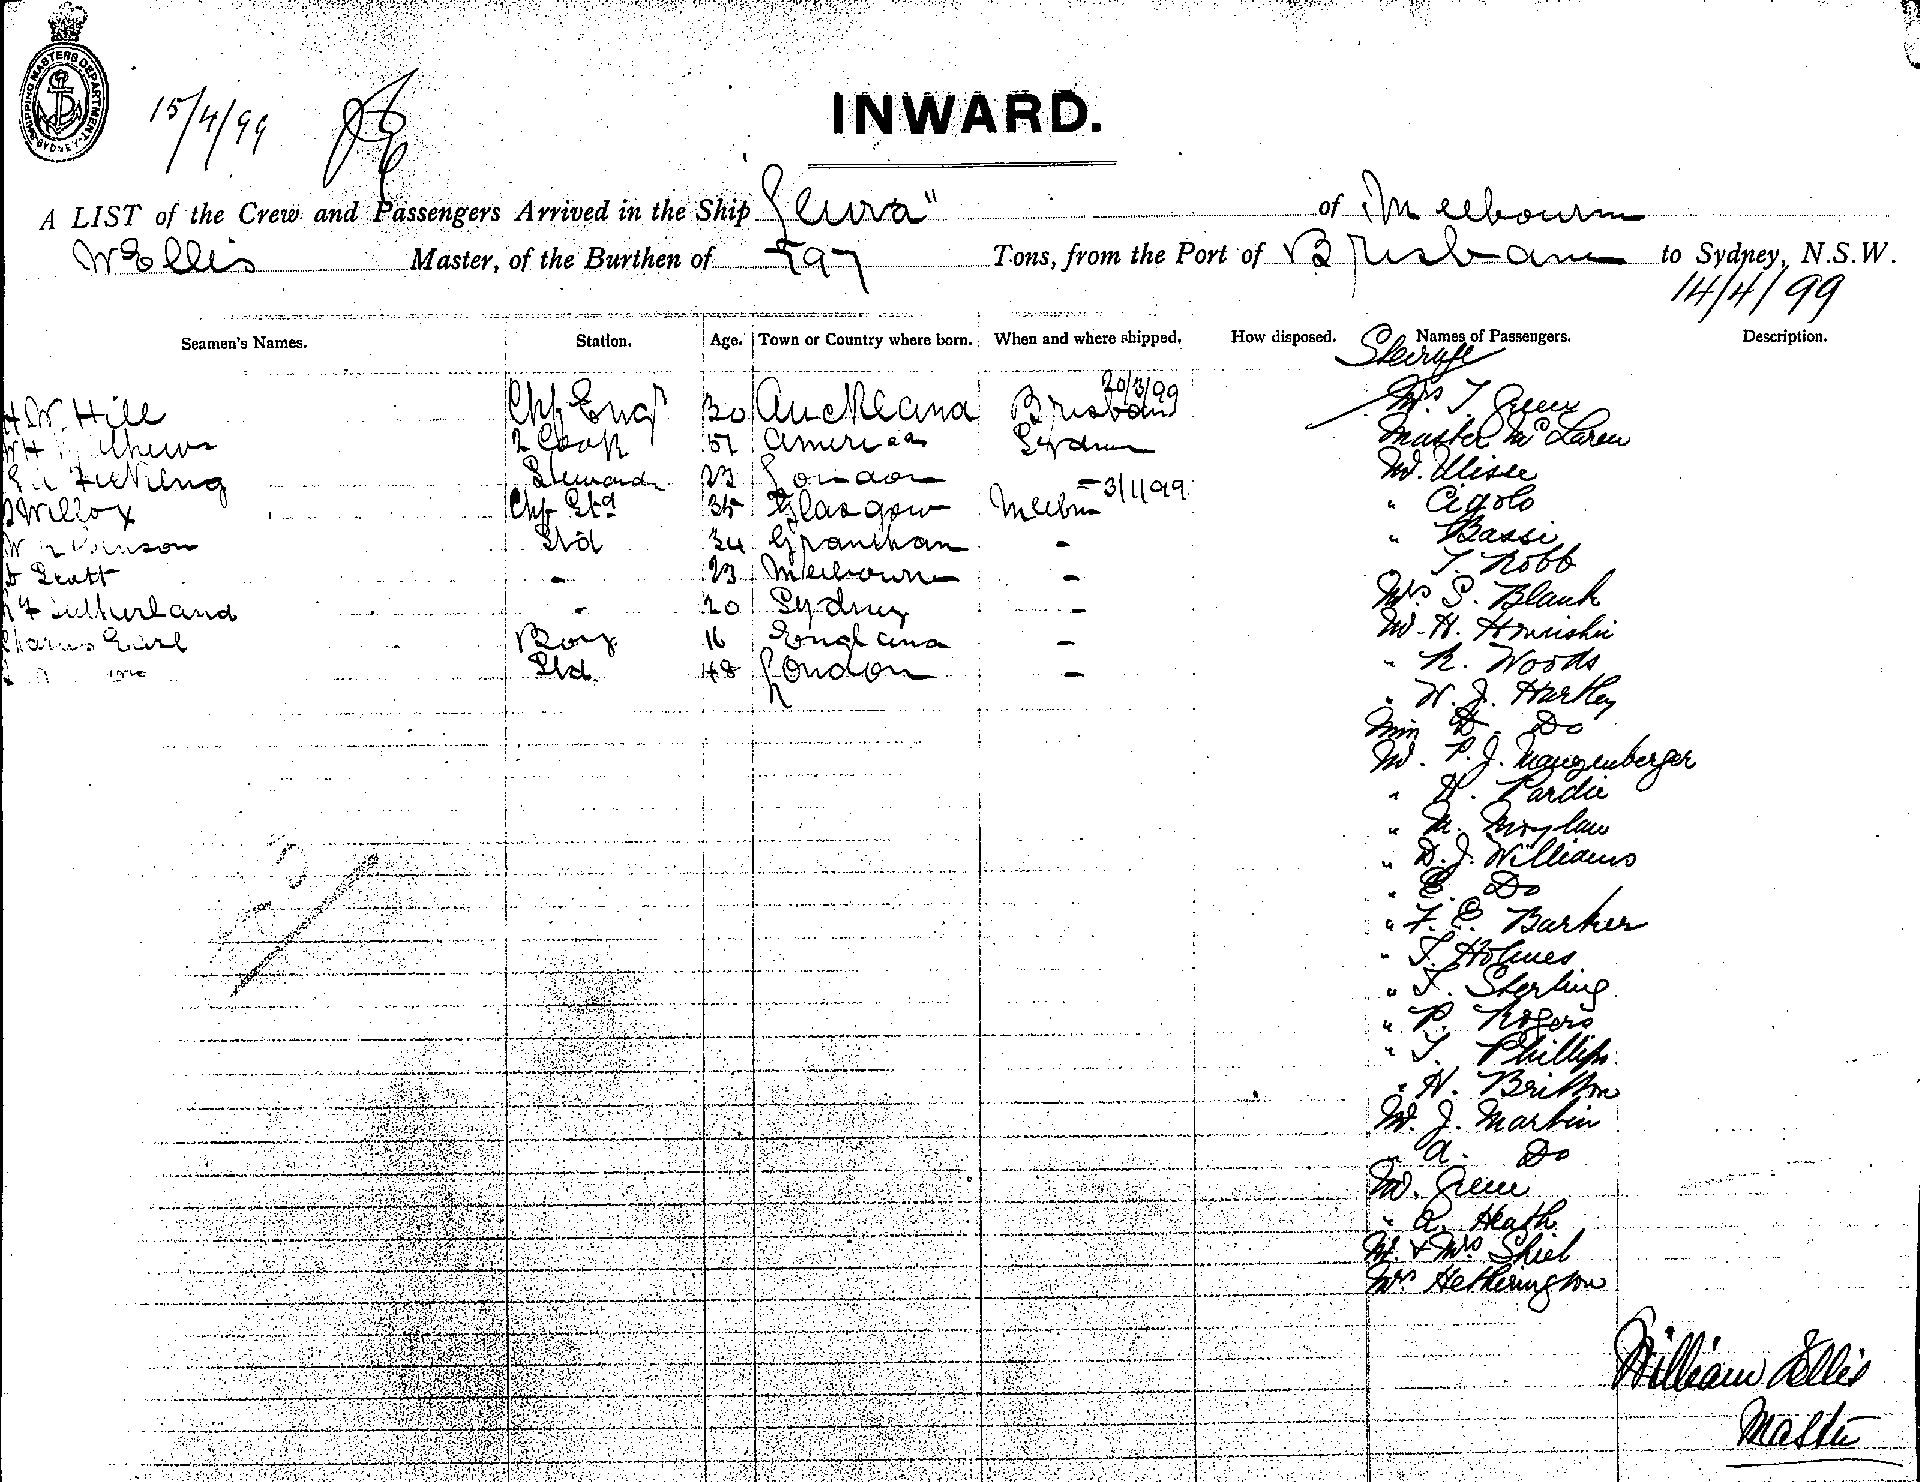 SHIPPING MASTERS DEPARTMENT SYDNEY
15/4/99
INWARD.
A LIST of the Crew and Passengers Arrived in the Ship "Leura" of Melbourne
W Ellis Master, of the Burthen of 797 Tons, from the Port of Brisbane to Sydney, N.S.W.
14/4/99
Seamen's Names. Station. Age. Town or Country where born. When and where shipped. How disposed. Names of Passengers. Description.
Steerage
H W. Hill Chf Engr 30 Auckland 20/3/99 Brisbane Mrs T Green
2 Cook 51 America Sydney Master McLaren
Steward 23 London - Mr. Ulisse
Willox Chf Std 35 Glasgow Melbn 3/1/99 " Cigolo
Std 34 - " Bassi
Scott - 23 Melbourne - T. Robb
Sutherland - 20 Sydney - Mrs S. Blank
Charles Earl Boy 16 England - Mr. H.
Std 48 London - " R. Woods
" W. J. Hartley
Miss Do
Mr. P. J.
" Pardie
" M. Moylan
" D. J. Williams
" E. Do
" F. E. Barker
" T. Holmes
" T. Sterling
" P. Rogers
" T. Phillips
" H. Britton
Mr. J. Martin
" A. Do
Mr. Green
" A. Heath
Mr. & Mrs Shiel
Mrs Hetherington
William Ellis
Master